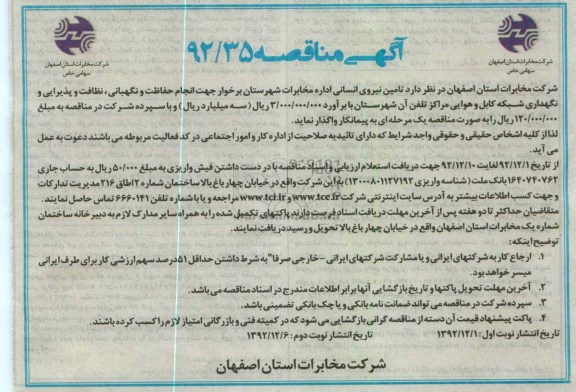 شرکت مخابرات استان اصفهان
سهامی خاص
آگهی مناقصه ۹۲/۳۵
شرکت مخابرات استان اصفهان
سهامی خاص
شرکت مخابرات استان اصفهان در نظر دارد تامین نیروی انسانی اداره مخابرات شهرستان برخوار جهت انجام حفاظت و نگهبانی ، نظافت و پذیرایی و
نگهداری شبکه کابل و هوایی مراکز تلفن آن شهرستان با برآورد ۳/۰۰۰/۰۰۰/۰۰۰ ریال ( سه میلیارد ریال ) و با سپرده شرکت در مناقصه به مبلغ
۱۲۰/۰۰۰/۰۰۰ ریال را به صورت مناقصه یک مرحله ای به پیمانکار واگذار نماید.
لذا از کلیه اشخاص حقیقی و حقوقی واجد شرایط که دارای تائیدیه صلاحیت از اداره کار و امور اجتماعی در کد فعالیت مربوطه می باشند دعوت به عمل
می آید.
از تاریخ ۹۲/۱۲/۱ لغایت ۹۲/۱۲/۱۰ جهت دریافت استعلام ارزیابی و اسناد مناقصه با در دست داشتن فیش واریزی به مبلغ ۵۰/۰۰۰ ریال به حساب جاری
۱۶۴۰۷۴۰۷۶۲ بانک ملت ( شناسه واریزی ۱۳۰۰۰۸۰۱۱۲۷۱۹۲) به این شرکت واقع در خیابان چهار باغ بالا ساختمان شماره ۲ اطاق ۲۱۶ مدیریت تدارکات
و جهت کسب اطلاعات بیشتر به آدرس سایت اینترنتی شرکت www.tce.ir و یا www.tci.ir مراجعه و یا با شماره تلفن ۶۶۶۰۱۴۱ تماس حاصل نمایند.
متقاضیان حداکثر تا دو هفته پس از آخرین مهلت دریافت اسناد فرصت دارند پاکتهای تکمیل شده را به همراه سایر مدارک لازم به دبیرخانه ساختمان
شماره یک مخابرات استان اصفهان واقع در خیابان چهار باغ بالا تحویل و رسید دریافت نمایند.
توضیح اینکه:
۱. ارجاع کار به شرکتهای ایرانی و یا مشارکت شرکتهای ایرانی -خارجی صرفا" به شرط داشتن حداقل ۵۱درصد سهم ارزشی کار برای طرف ایرانی
میسر خواهد بود.
۲. آخرین مهلت تحویل پاکتها و تاریخ بازگشایی آنها برابر اطلاعات مندرج در اسناد مناقصه می باشد.
۳. سپرده شرکت در مناقصه می تواند ضمانت نامه بانکی و یا چک بانکی تضمینی باشد.
۴. پاکت پیشنهاد قیمت آن دسته از مناقصه گرانی بازگشایی می شود که در کمیته فنی و بازرگانی امتیاز لازم را کسب کرده باشند.
تاریخ انتشار نوبت اول: ۱۳۹۲/۱۲/۱ تاریخ انتشار نوبت دوم: ۱۳۹۲/۱۲/۶
شرکت مخابرات استان اصفهان